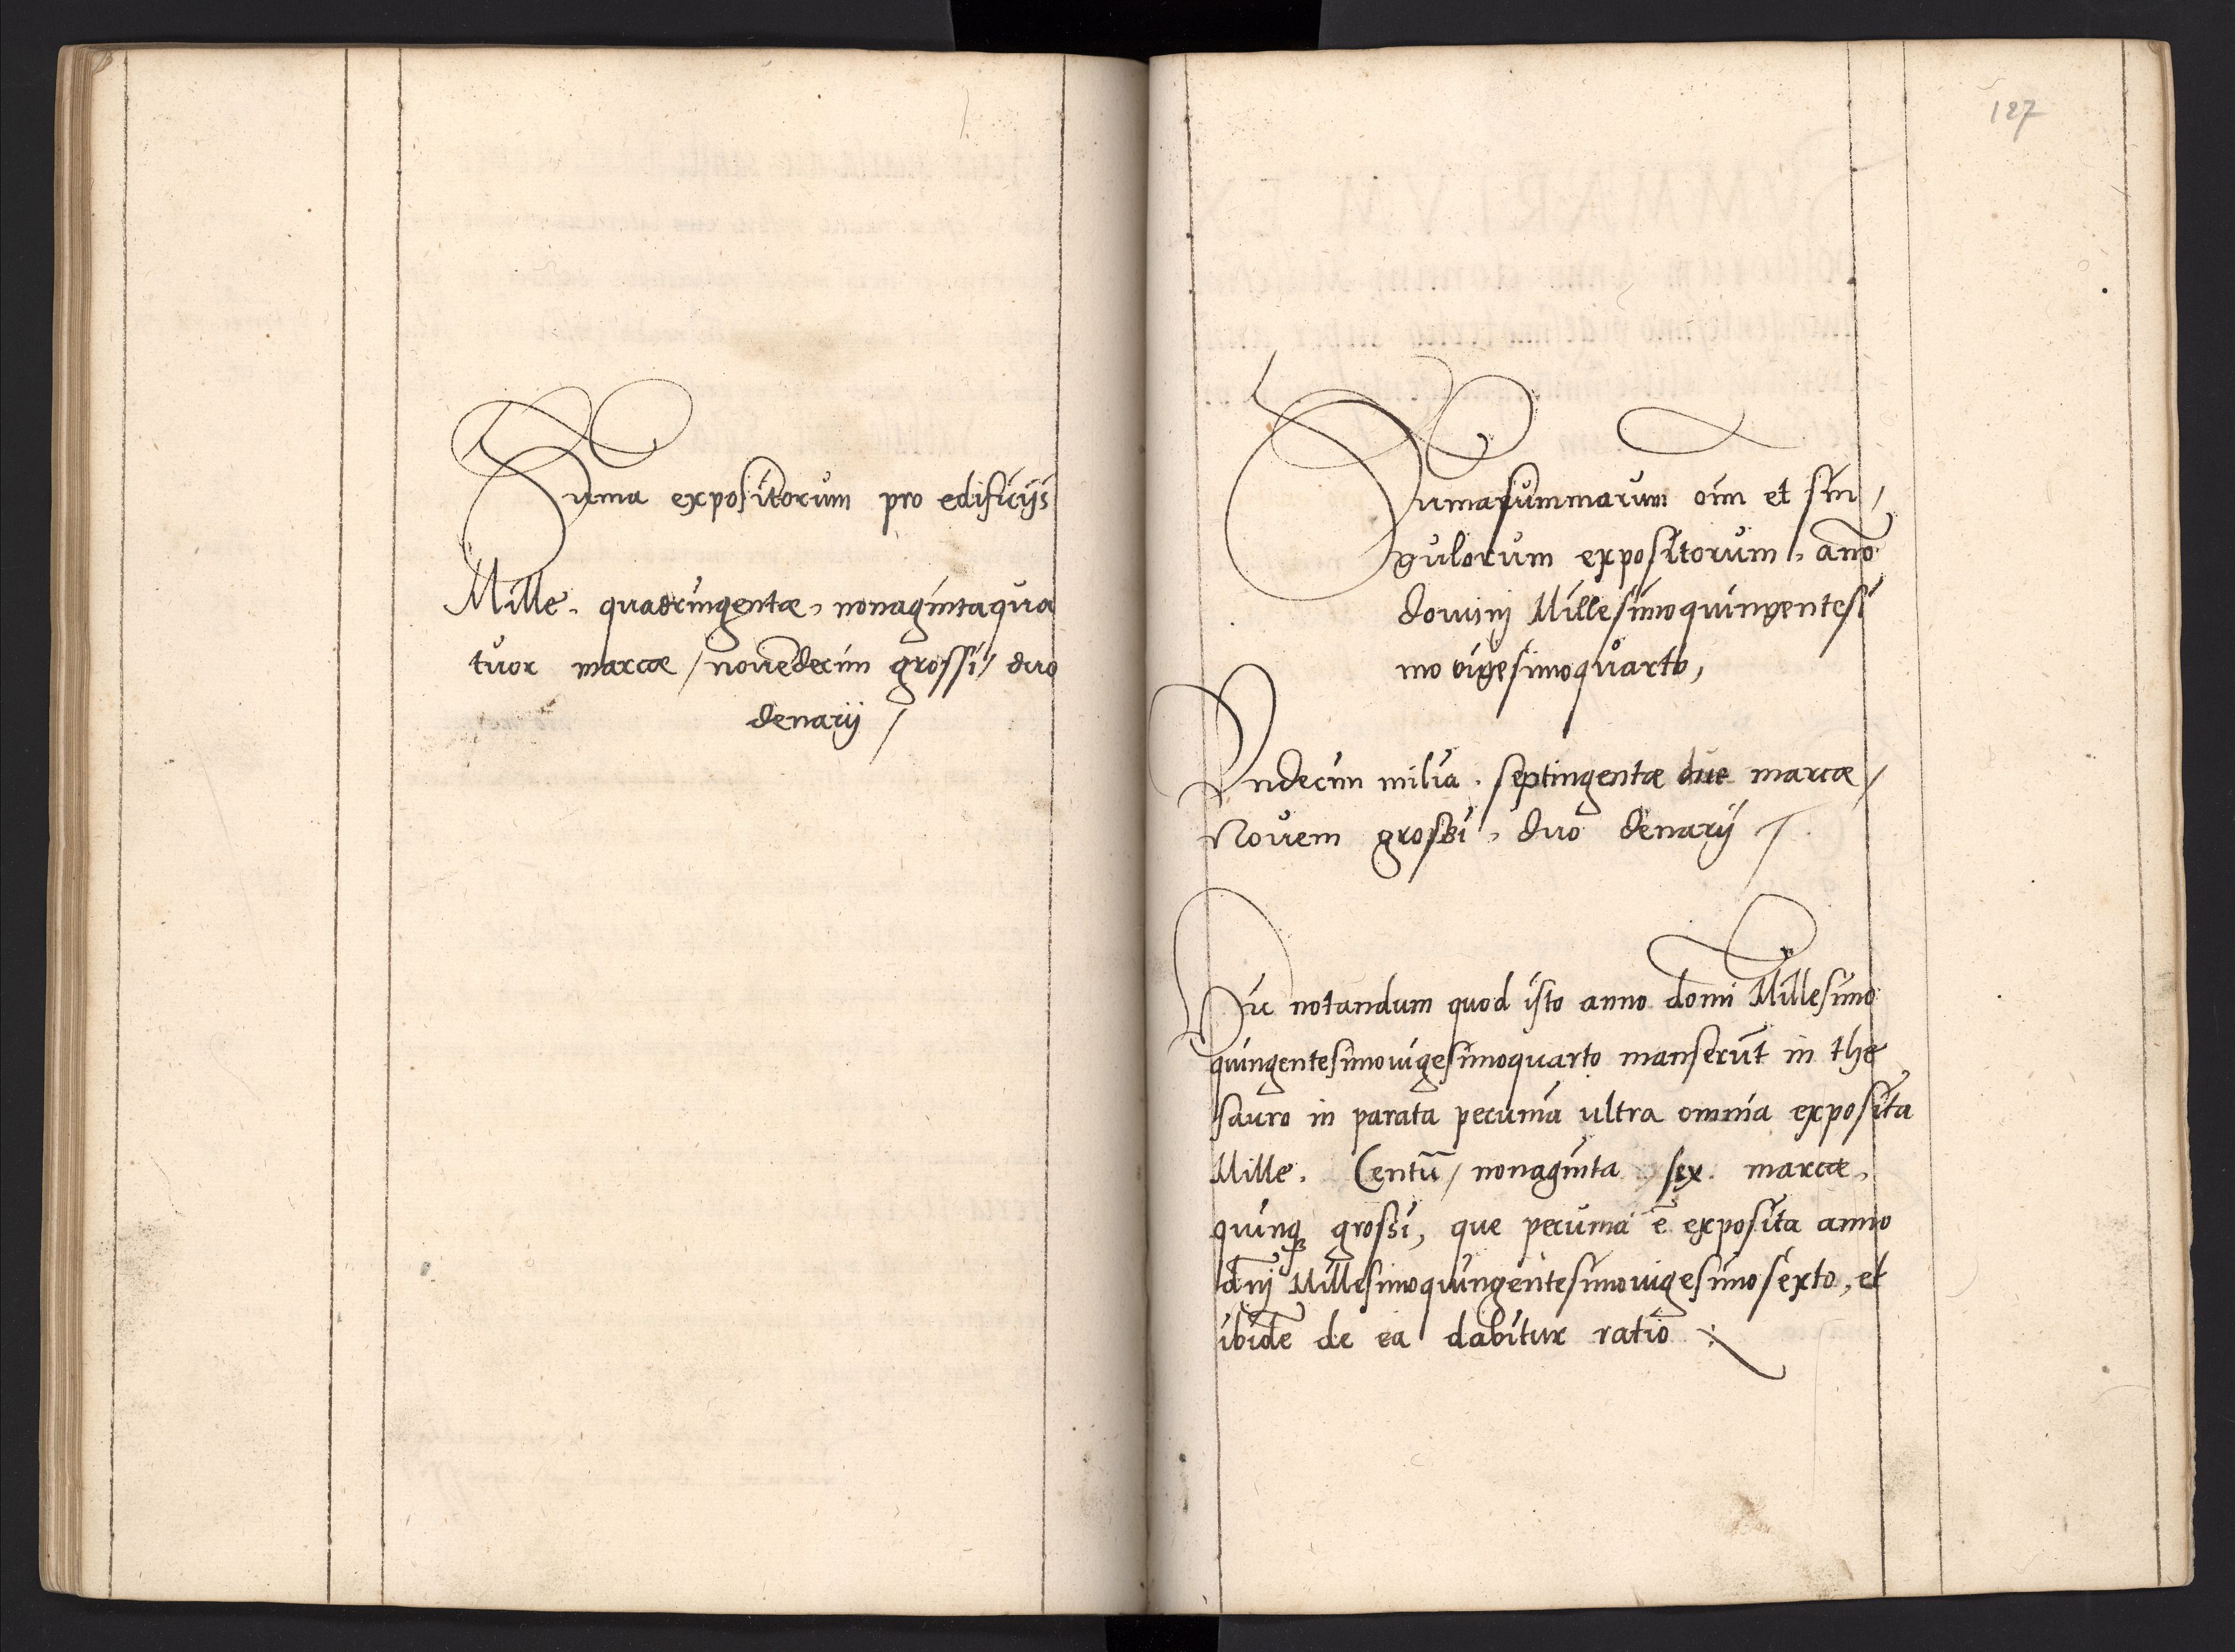 Suma expositorum pro edificijs
Mille. quadringentæ, nonagintaqua
tuor marcæ / novedecim grossi / duo
denarij /
127
Sumasummarum oim et sin /
gulorum expositorum, año
dominj Millesimoquingentesi
mo vigesimoquarto,
Vndecim milia. septingentæ due marcæ /
Novem grossi, duo denarij /.
Hic notandum quod isto anno domi Millesimo
quingentesimovigesimoquarto manserūt in the
sauro in parata pecunia ultra omnia exposita
Mille. Centū / nonaginta sex marcæ,
quinqꝫ grossi, que pecunia ē exposita anno
dn̄j Millesimoquingentesimovigesimosexto, et
ibidē de ea dabitur ratio